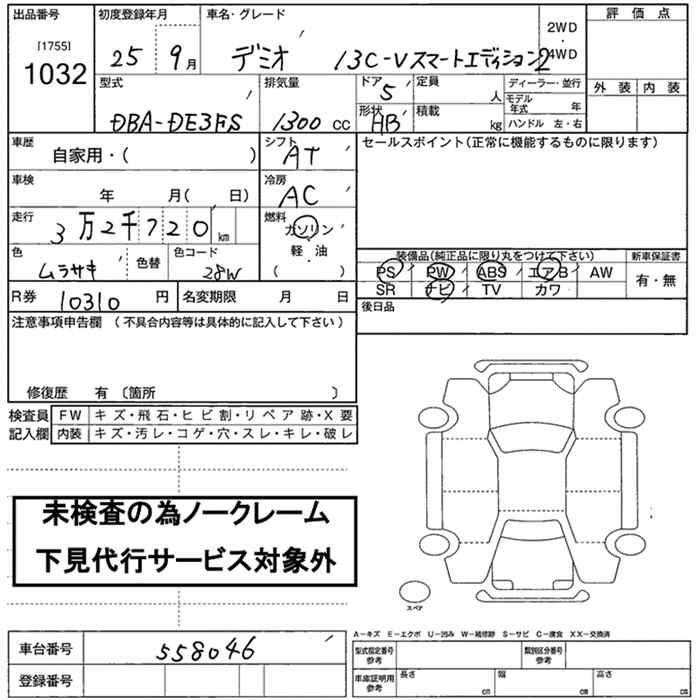 出品番号 初度登録年月 車名・グレード 2WD・4WD 評価点
[1755]
1032 25 9月 デミオ 13C-Vスマートエディション2
型式 排気量 ドア 5 定員 人 ディーラー・並行 外装 内装
DBA-DE3FS 1300 CC 形状 HB 積載 kg モデル年式 年
ハンドル 左・右
車歴 自家用・( ) シフト AT セールスポイント(正常に機能するものに限ります)
車検 年 月( 日) 冷房 AC
走行 3万2千720km 燃料 ガソリン
軽・油
( )
色 ムラサキ 色替 色コード 28W
装備品(純正品に限り丸をつけて下さい) 新車保証書
PS PW ABS エアB AW 有・無
SR ナビ TV カワ
R券 10310円 名変期限 月 日 後日品
注意事項申告欄 (不具合内容等は具体的に記入して下さい)
修復歴 有〔箇所 〕
検査員 FW キズ・飛石・ヒビ割・リペア跡・X要
記入欄 内装 キズ・汚レ・コゲ・穴・スレ・キレ・破レ
未検査の為ノークレーム
下見代行サービス対象外
スペア
A-キズ E-エクボ U-凹み W-補修跡 S-サビ C-腐食 XX-交換済
車台番号 558046 型式指定番号 参考 類別区分番号 参考
登録番号 車庫証明用 参考 長さ cm 幅 cm 高さ cm